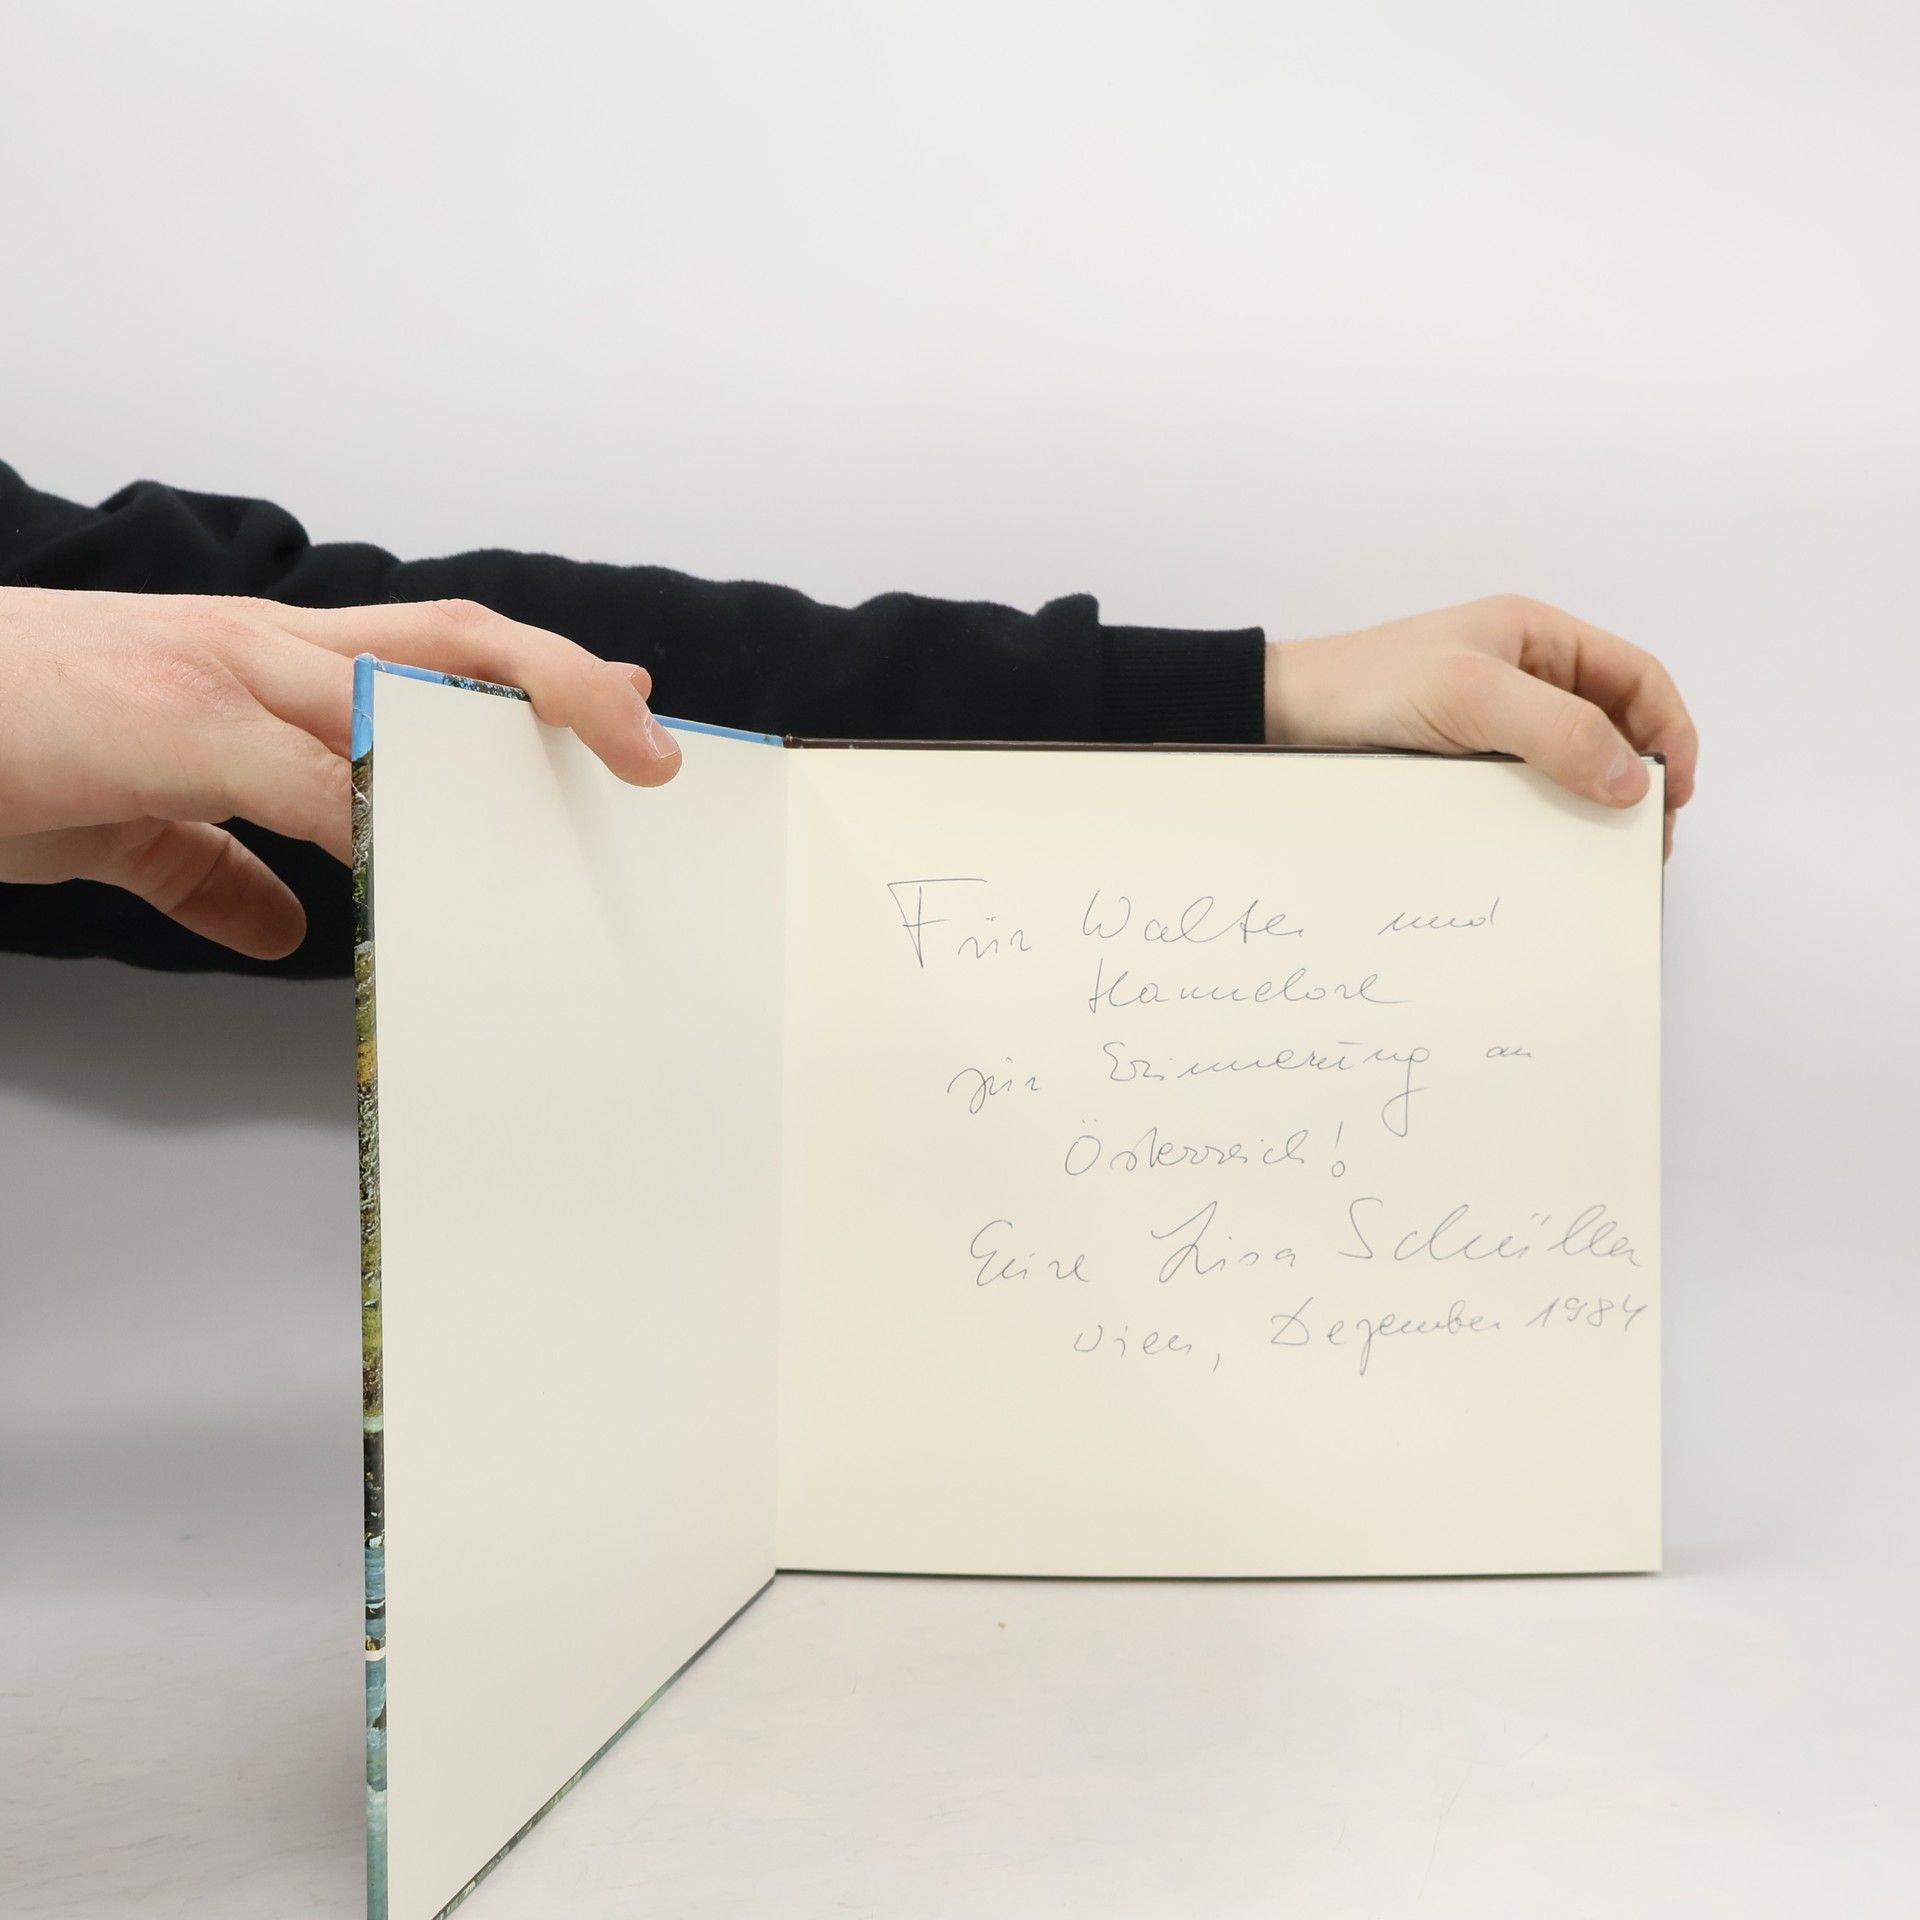 Für Walter und
Hannelore
zur Erinnerung an
Österreich!
Eure Lisa Schüller
Wien, Dezember 1984